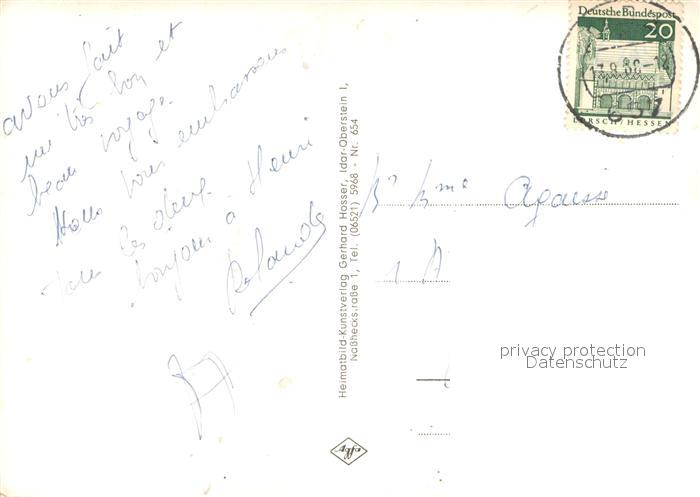 avons fait
un très bon et
beau voyage.
Nous vous embrassons
tous les deux.
bonjour à Henri
Rolande
Heimatbild-Kunstverlag Gerhard Hosser, Idar-Oberstein I,
Naßheckstraße 1, Tel. (06521) 5968 - Nr. 654
Agfa
Deutsche Bundespost
20
LORSCH/HESSEN
Mr Mme
privacy protection
Datenschutz